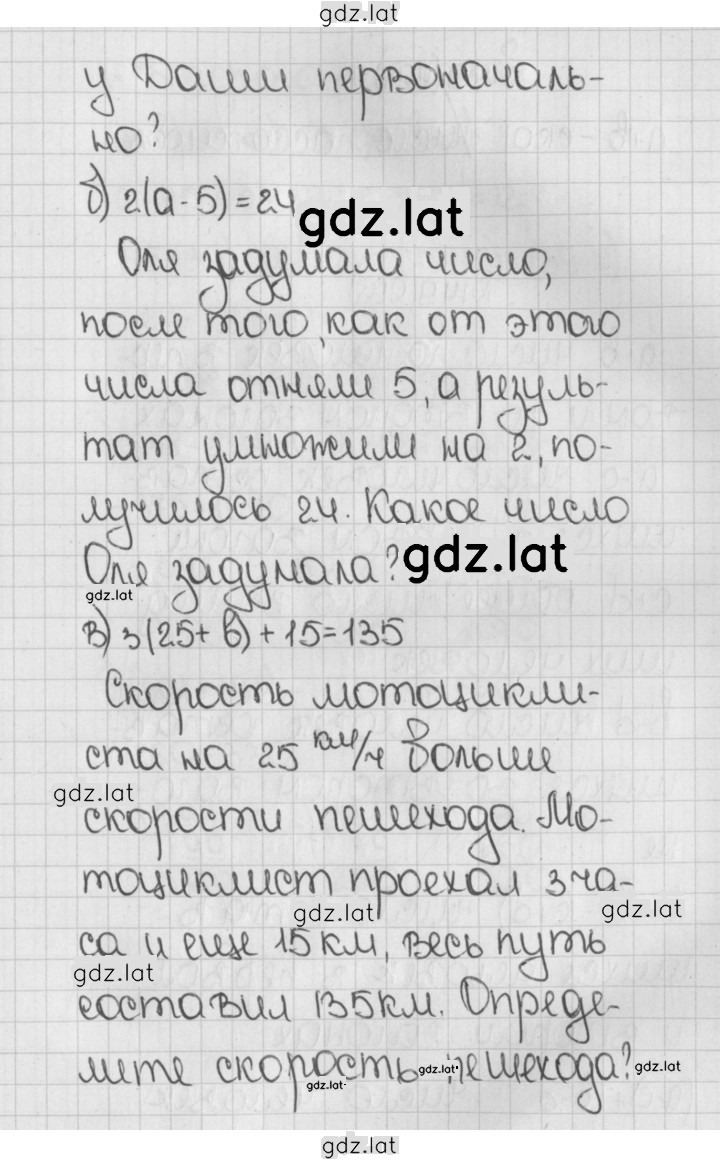 gdz.lat
у Даши первоначаль-
но?
б) 2(а - 5) = 24
gdz.lat
Оля задумала число,
после того, как от этого
числа отняли 5, а резуль-
тат умножили на 2, по-
лучилось 24. Какое число
Оля задумала?
gdz.lat
gdz.lat
в) 3(25 + в) + 15 = 135
Скорость мотоцикли-
ста на 25 км/ч больше
gdz.lat
скорости пешехода. Мо-
тоциклист проехал 3 ча-
gdz.lat gdz.lat
са и еще 15 км, весь путь
gdz.lat
составил 135 км. Опреде-
лите скорость пешехода?
gdz.lat gdz.lat
gdz.lat
gdz.lat